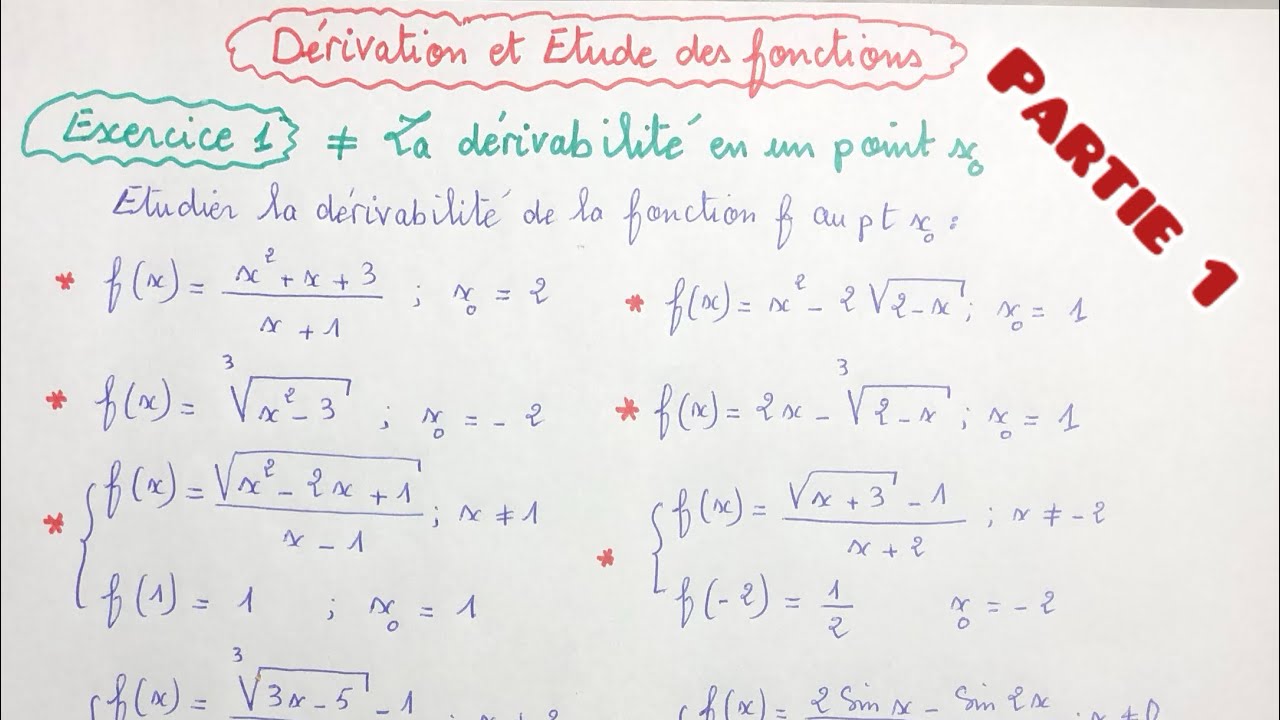 Dérivation et Etude des fonctions
PARTIE 1
Exercice 1 ≠ La dérivabilité en un point x₀
Etudier la dérivabilité de la fonction f au pt x₀ :
* f(x) = (x² + x + 3)/(x + 1) ; x₀ = 2
* f(x) = x² - 2√(2-x) ; x₀ = 1
* f(x) = ³√(x² - 3) ; x₀ = -2
* f(x) = 2x - ³√(2-x) ; x₀ = 1
* { f(x) = √(x² - 2x + 1)/(x - 1) ; x ≠ 1
f(1) = 1 ; x₀ = 1
* { f(x) = (√(x + 3) - 1)/(x + 2) ; x ≠ -2
f(-2) = 1/2 x₀ = -2
{ f(x) = ³√(3x - 5) - 1
{ f(x) = 2 Sin x - Sin 2x